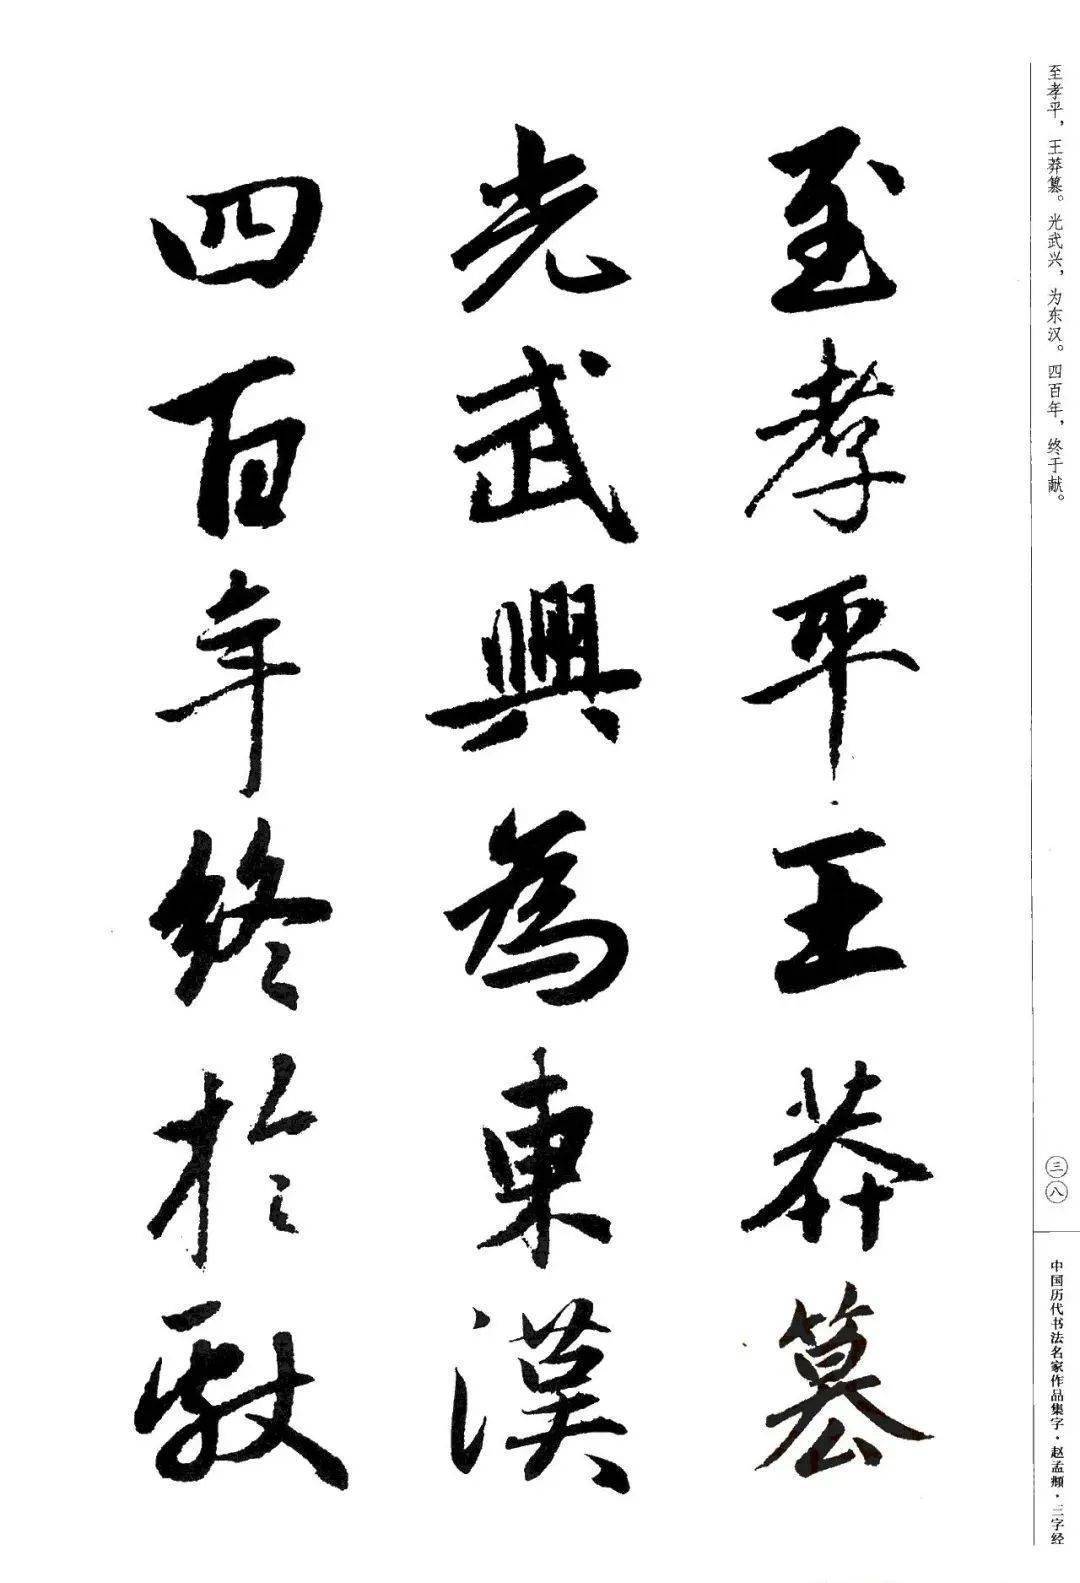 至孝平，王莽篡。光武兴，为东汉。四百年，终于献。
至孝平王莽篡
光武興為東漢
四百年終於献
三八
中国历代书法名家作品集字·赵孟頫·三字经